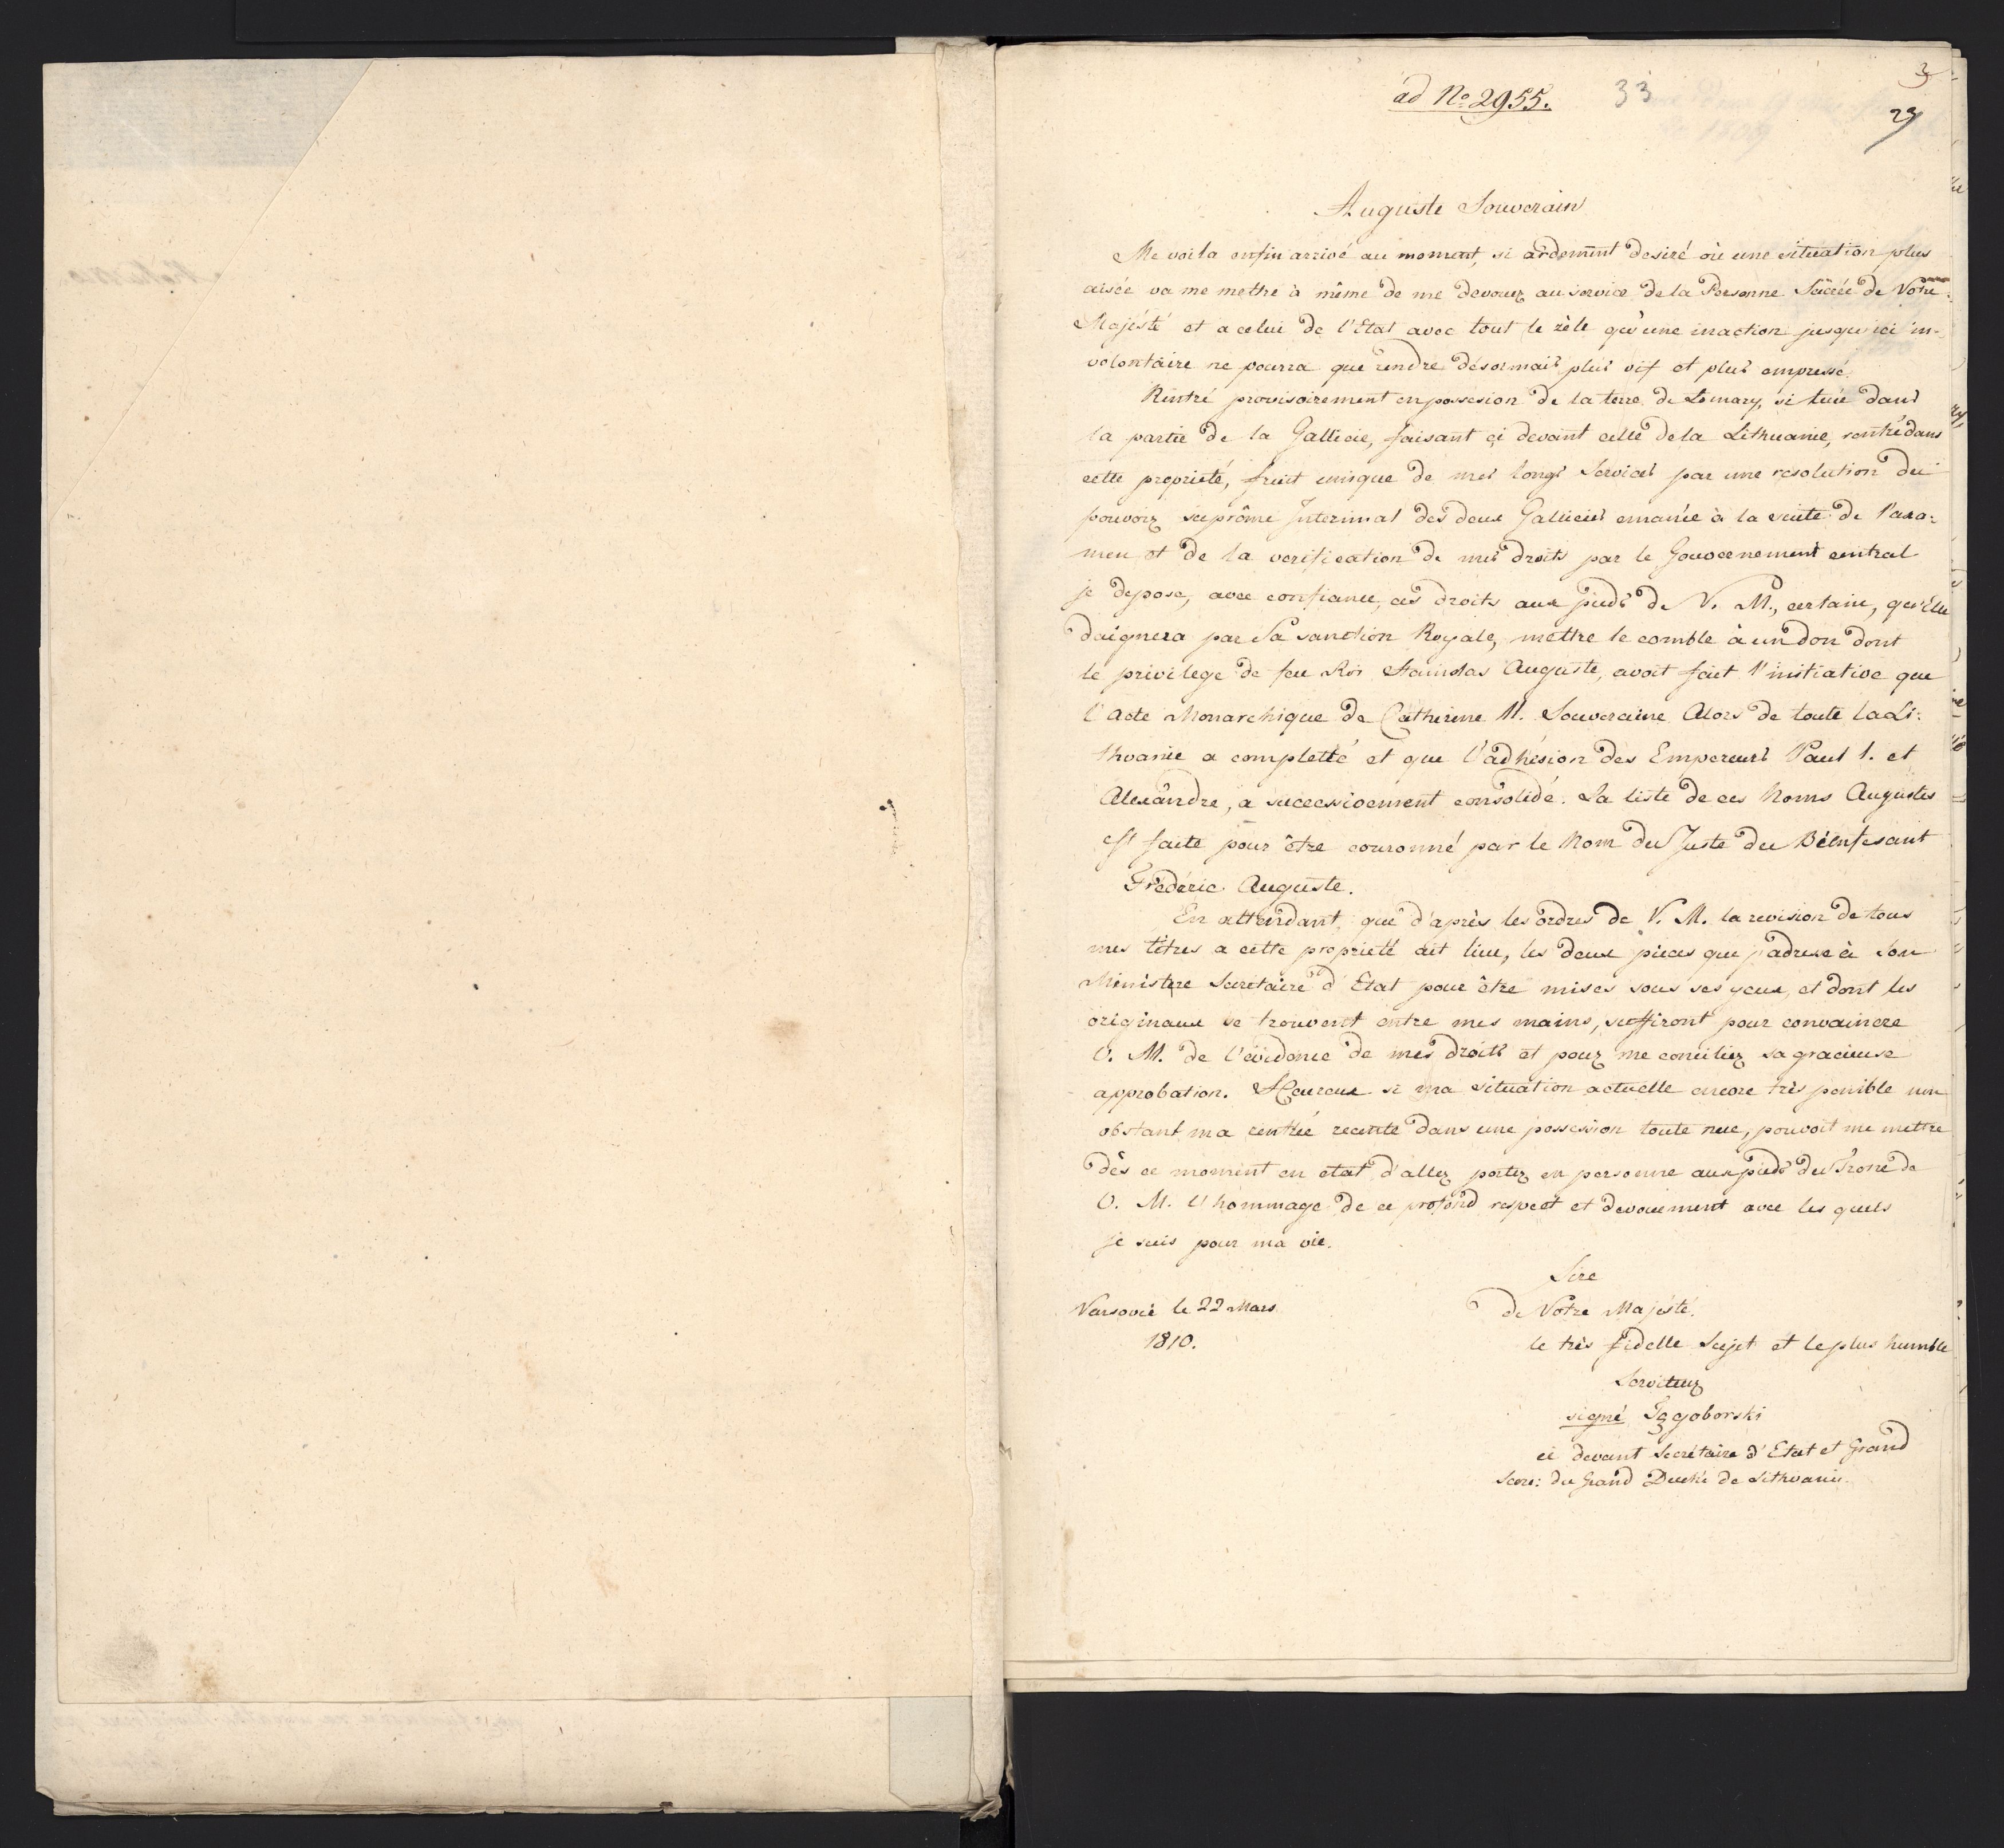 ad No 2955.
33
3
29
Auguste Souverain
Me voila enfin arrivé au moment, si ardemment desiré où une situation plus
aisée va me mettre à même de me devouer au service de la Personne Sacrée de Votre
Majésté et a celui de l'Etat avec tout le zèle qu'une inaction jusqu'ici in-
volontaire ne pourra que rendre désormais plus vif et plus empressé.
Rentré provisoirement en possesion de la terre de Lomazy, située dans
la partie de la Gallicie, faisant çi devant celle de la Lithuanie, rentré dans
cette proprieté, fruit unique de mes longs Services par une resolution du
pouvoir suprême Interimal des deux Gallicies emanée à la suite de l'exa-
men et de la verification de mes droits par le Gouvernement central
je depose, avec confiance, ces droits aux pieds de V. M., certain, qu'Elle
daignera par Sa sanction Royale, mettre le comble à un don dont
le privilege de feu Roi Stanislas Auguste, avoit fait l'initiative que
l'Acte Monarchique de Catherine II. Souveraine Alors de toute la Li-
thvanie a completté et que l'adhésion des Empereurs Paul I. et
Alexandre, a successivement consolidé. La liste de ces Noms Augustes
est faite pour être couronné par le Nom du Juste du Bienfesant
Frédéric Auguste.
En attendant que d'après les ordres de V. M. la revision de tous
mes titres a cette proprieté ait lieu, les deux pieces que j'adresse à Son
Ministre Secretaire d'Etat pour être mises sous ses yeux, et dont les
originaux se trouvent entre mes mains, suffiront pour convaincre
V. M. de l'evidence de mes droits et pour me concilier sa gracieuse
approbation. Heureux si ma situation actuelle encore très penible non
obstant ma rentrée recente dans une possession toute nue, pouvoit me mettre
dès ce moment en etat d'aller porter en personne aux pieds du Trone de
V. M. l'hommage de ce profond respect et devouement avec les quels
je suis pour ma vie.
Sire
Varsovie le 22 Mars
de Votre Majésté.
1810.
le très fidelle Sujet et le plus humble
Serviteur
signé Tęgoborski
ci devant Secretaire d'Etat et Grand
Secre: du Grand Duché de Lithvanie.